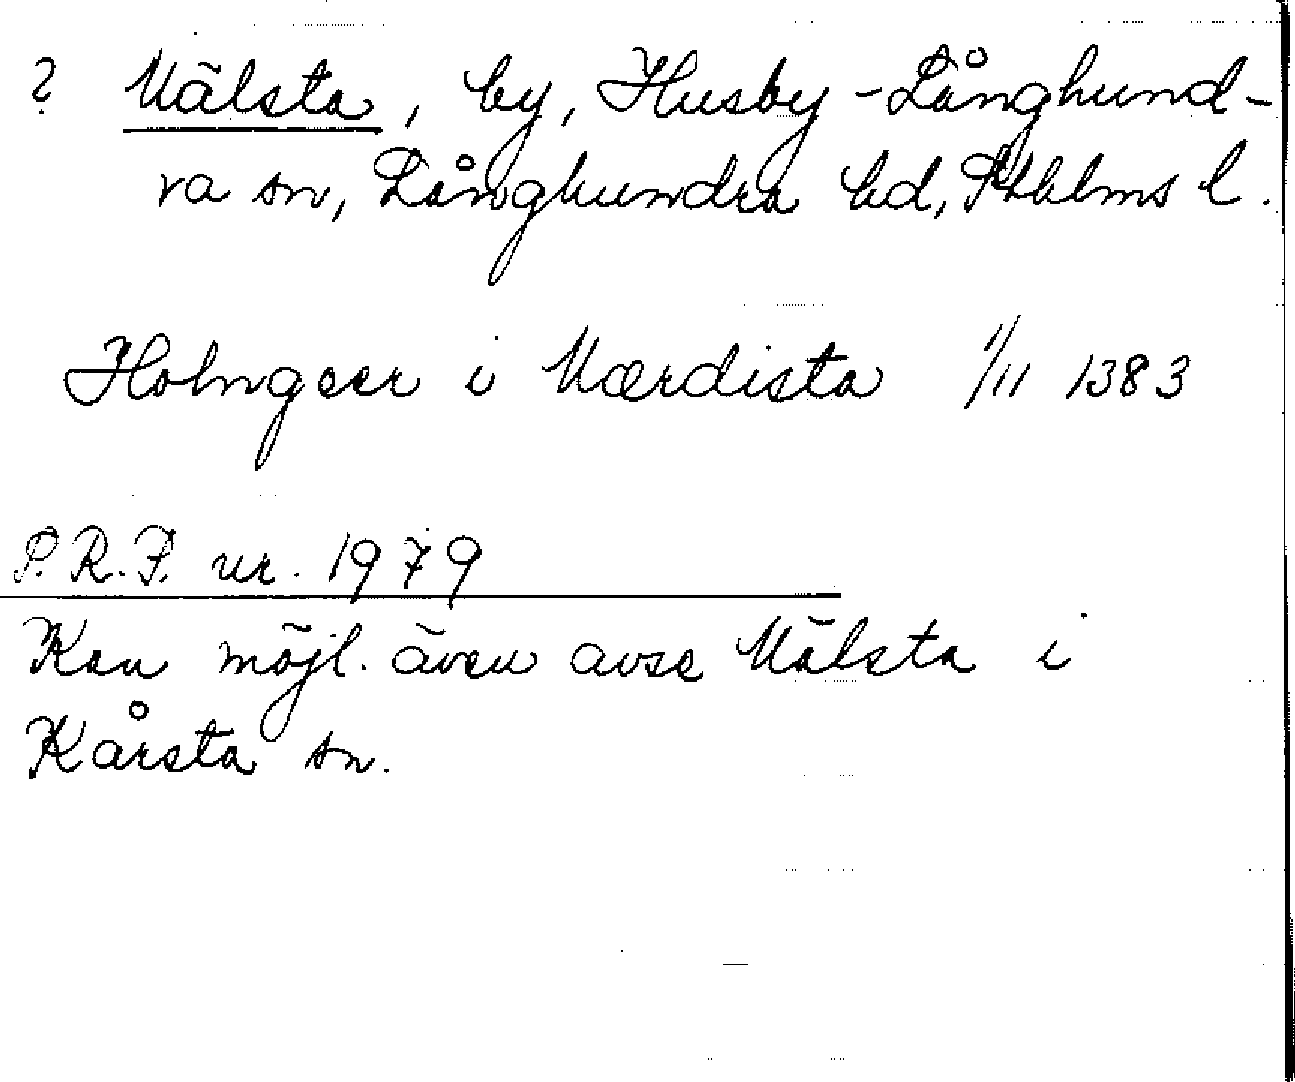 ? Mälsta, by, Husby-Långhund-
ra sn, Långhundra hd, Sthlms l.
Holmgeer i Mærdista 1/11 1383
P.R.F. nr. 1979
Kan möjl. även avse Mälsta i
Kårsta sn.